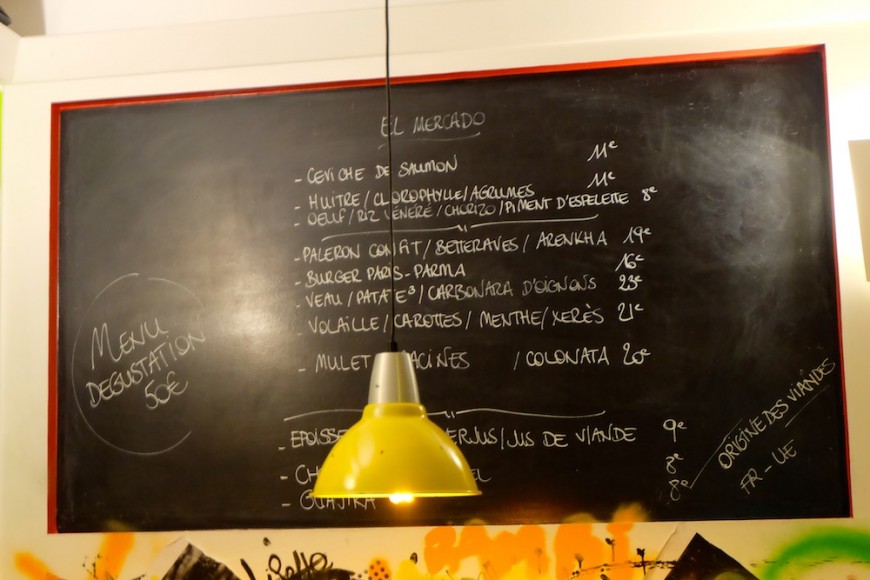 EL MERCADO
- CEVICHE DE SAUMON 11€
- HUITRE / CLOROPHYLLE / AGRUMES 11€
- OEUF / RIZ VÉNÉRÉ / CHORIZO / PIMENT D'ESPELETTE 8€
- PALERON CONFIT / BETTERAVES / ARENKHA 19€
- BURGER PARIS-PARMA 16€
- VEAU / PATATE³ / CARBONARA D'OIGNONS 23€
- VOLAILLE / CAROTTES / MENTHE / XERÈS 21€
- MULET / COLONATA 20€
MENU
DEGUSTATION
50€
- EPOISSE VERJUS / JUS DE VIANDE 9€
8€
- GUAJIRA 8€
ORIGINE DES VIANDES
FR - UE
BAMBI